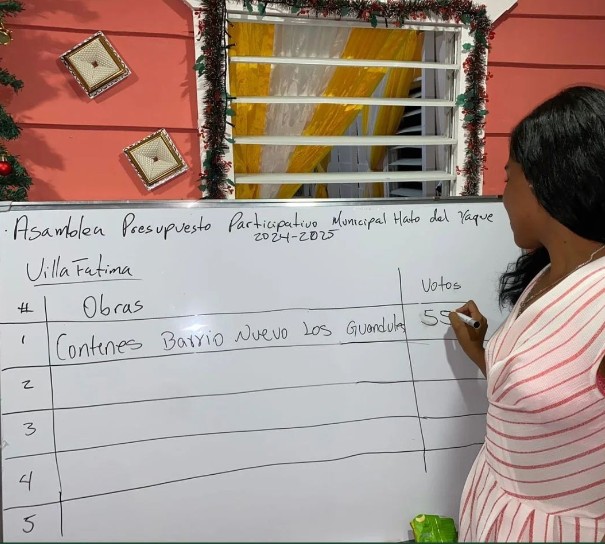 Asamblea Presupuesto Participativo Municipal Hato del Yaque
2024-2025
Villa Fatima
# Obras Votos
1 Contenes Barrio Nuevo Los Guandules 55
2
3
4
5